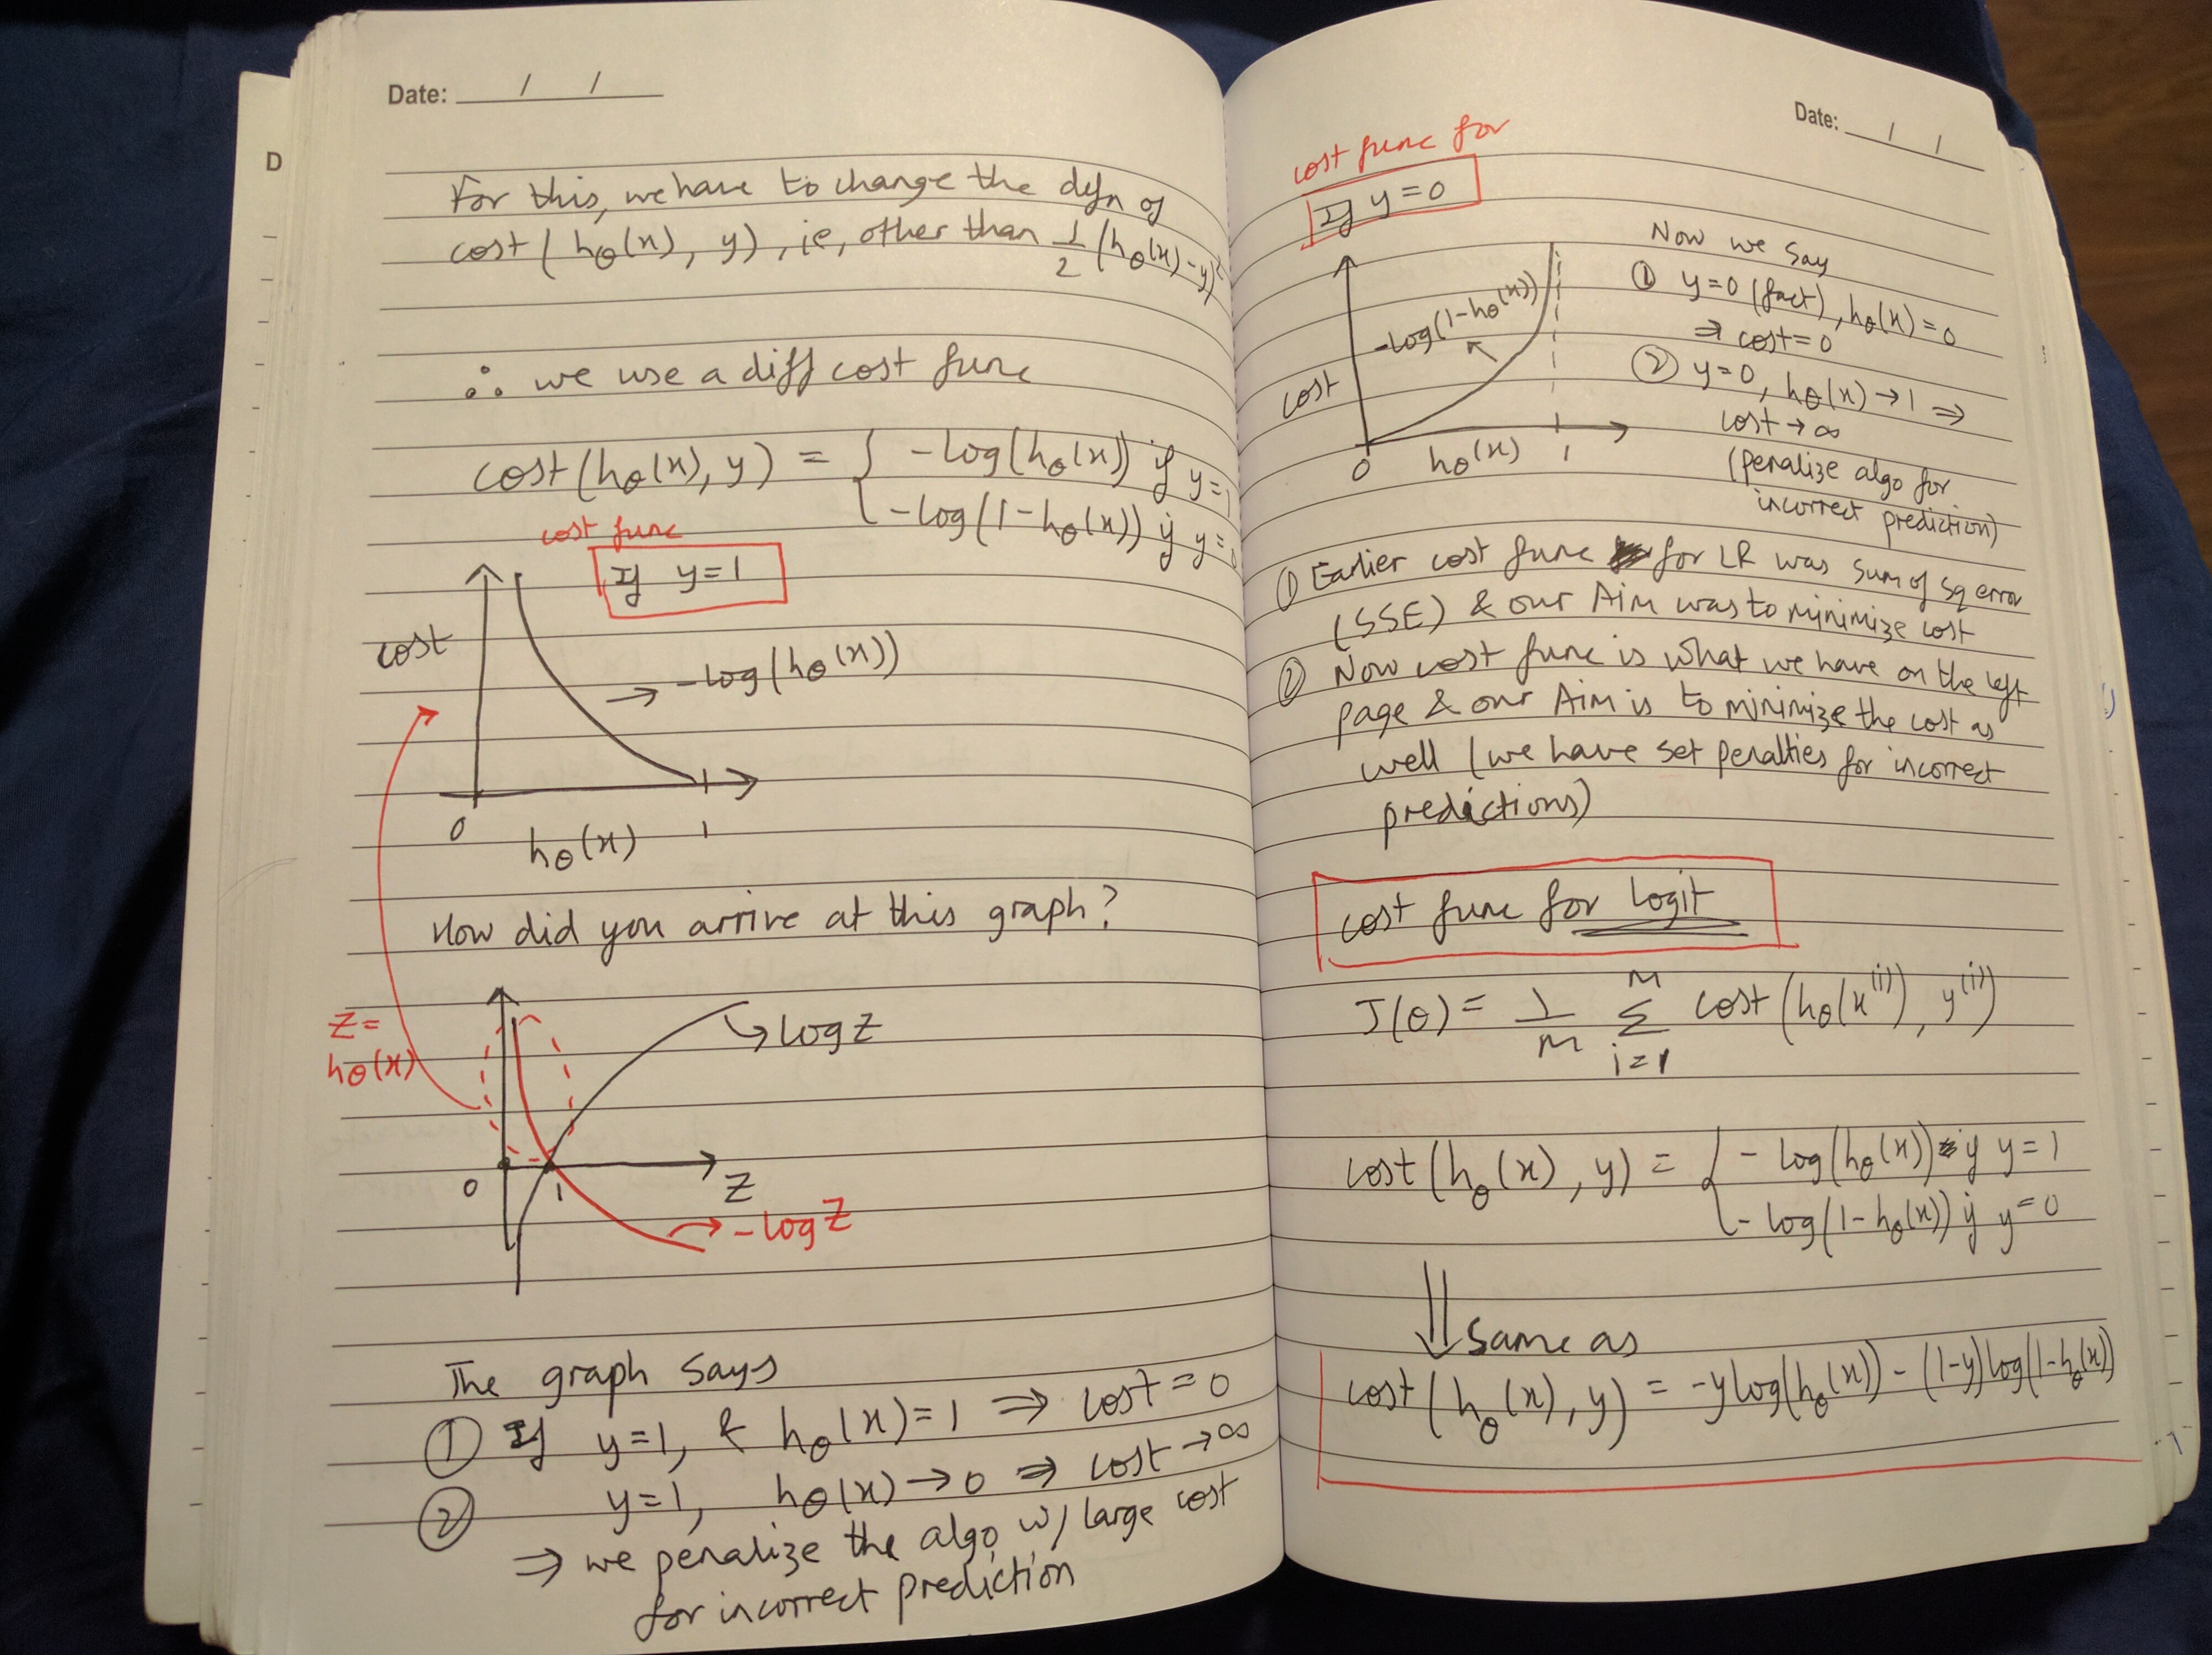 D
Date: / /
For this, we have to change the defn of
cost(hθ(x), y), ie, other than 1/2 (hθ(x)-y)²
∴ we use a diff cost func
cost(hθ(x), y) = { -log(hθ(x)) if y=1
-log(1-hθ(x)) if y=0
cost func
If y=1
cost
→ -log(hθ(x))
0 hθ(x) 1
How did you arrive at this graph?
z=
hθ(x)
log z
0 1 z
→ -log z
The graph says
① If y=1, & hθ(x)=1 ⇒ cost=0
② y=1, hθ(x)→0 ⇒ cost→∞
⇒ we penalize the algo w/ large cost
for incorrect prediction
Date: / /
cost func for
If y=0
-log(1-hθ(x))
cost
0 hθ(x) 1
Now we say
① y=0 (fact), hθ(x)=0
⇒ cost=0
② y=0, hθ(x)→1 ⇒
cost→∞
(penalize algo for
incorrect prediction)
① Earlier cost func for LR was sum of sq error
(SSE) & our Aim was to minimize cost
② Now cost func is what we have on the left
page & our Aim is to minimize the cost as
well (we have set penalties for incorrect
predictions)
cost func for logit
J(θ) = 1/m Σ_{i=1}^{m} cost(hθ(x⁽ⁱ⁾), y⁽ⁱ⁾)
cost(hθ(x), y) = { -log(hθ(x)) if y=1
-log(1-hθ(x)) if y=0
⇓ same as
cost(hθ(x), y) = -ylog(hθ(x)) - (1-y)log(1-hθ(x))